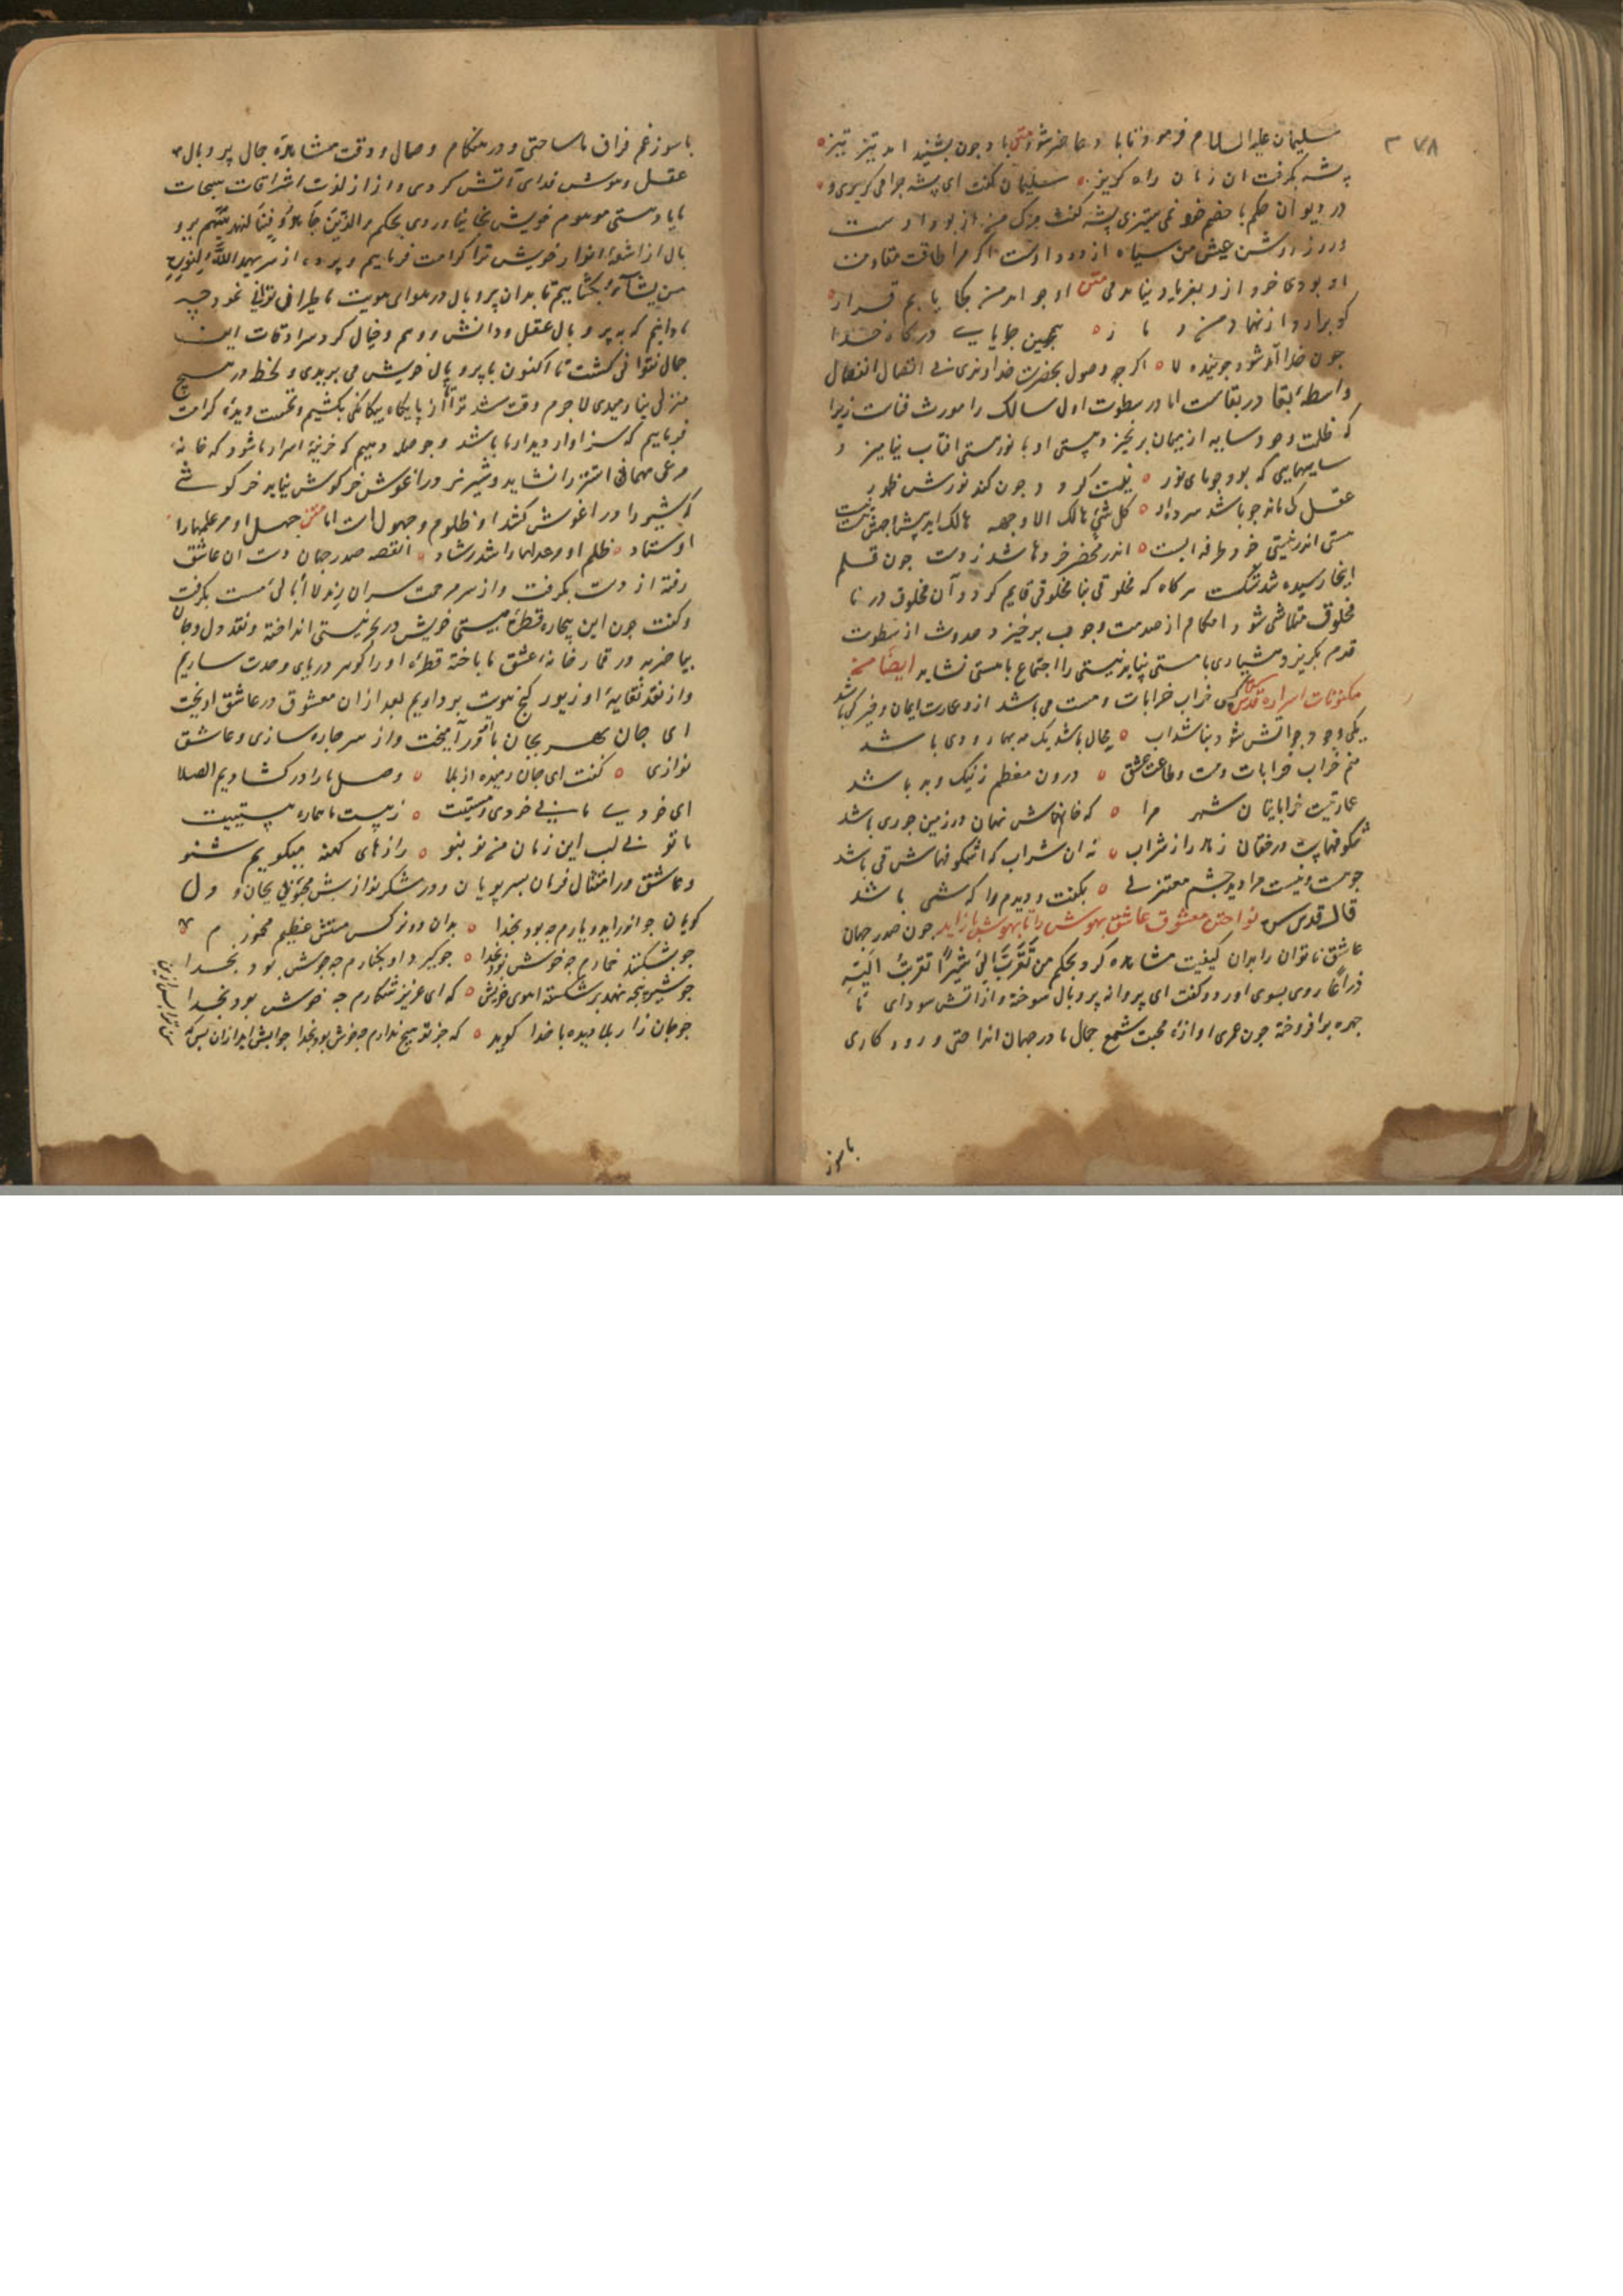 ۲۷۸
سلیمان علیه السلام فرمود تا باد حاضر شود متن باد چون بشنید امد تیز تیز
پشه بکرفت ان زمان راه کریز سلیمان کفت ای پشه چرا می کریزی و
در دیوان حکم با خصم خود نمی ستیزی پشه کفت مرک من از بود اوست
و روز روشن عیش من سیاه از دود اوست اکر مرا طاقت مقاومت
او بودی خود از و بفریاد نیامدمی متن او چو امد من کجا یابم قرار
کو برارد از نهاد من دمار همچنین جویای درکاه خدا
چون خدا آمد شود جوینده لا اکر چه وصول بحضرت خداوندی بی اتصال انفصال
واسطه بقا در بقاست اما در سطوت اول سالک را مورث فناست زیرا
که ظلمت وجود سایه از میان برخیزد و هستی او با نور هستی افتاب نیامیزد
سایهایی که بود جویای نور نیست کردد چون کند نورش ظهور
عقل کی ماند چو باشد سرده او کل شیئ هالک الا وجهه هالک اید پیش وجهش هست نیست
هستی اندر نیستی خود طرفه ایست اندر محضر خردها شد ز دست چون قلم
اینجا رسیده شد شکست هرکاه که مخلوقی بنا مخلوقی قایم کردد آن مخلوق در نا
مخلوق متلاشی شود و احکام از صدمت وجوب برخیزد و حدوث از سطوت
قدم بکریزد هشیاری با مستی نپاید نیستی را اجتماع با هستی نشاید ایضا من
مکنونات اسراره قدس سره کسی خراب خرابات و مست می باشد ازو عمارت ایمان و خیر کی باشد
یکی وجود چو اتش شود بنا شد اب محال باشد یک مه بهار و دی باشد
منم خراب خرابات و مست و طاعت عشق درون مغطم ز نیک و بد باشد
عمارتیست خراباتیان شهر مرا که خانهاش نهان در زمین چو ری باشد
شکوفهاست درختان زهد را ز شراب نه ان شراب که اشکوفهاش قی باشد
چو هست و نیست مرا دید چشم معتزلی بکفت دیدم و را که شی باشد
قال قدس سره نواختن معشوق عاشق بیهوش را تا بهوش باز اید چون صدر جهان
عاشق ناتوان را بدان کیفیت مشاهده کرد بحکم من تقرب الی شبرا تقربت الیه
ذراعا روی بسوی اورد و کفت ای پروانه پر و بال سوخته و از اتش سودای ما
چهره برافروخته چون عمری اوازه محبت شمع جمال ما در جهان انداختی و روزکاری
با سوز
با سوز غم فراق ما ساختی و در هنکام وصال و وقت مشاهده جمال پر و بال
عقل و هوش فدای آتش کردی و از لذت اشراقات سبحات
ما یاد هستی موهوم خویش بخا نیاوردی بحکم والذین جاهدوا فینا لنهدینهم پر و
بال از اشعه انوار خویش ترا کرامت فرماییم و پرده از سر یهدی الله لنوره
من یشاء بکشاییم تا بدان پر و بال در هوای هویت ما طیرانی توانی نمود چه
ما دانیم که به پر و بال عقل و دانش و وهم و خیال کرد سرادقات این
جمال نتوانی کشت تا اکنون با پر و بال خویش می پریدی و لحظه در هیچ
منزلی نیارمیدی لاجرم وقت شد ترا از پایکاه بیکانکی بکشیم و نخست دیده کرامت
فرماییم که سزاوار دیدار ما باشد و حوصله دهیم که خزینه اسرار ما شود که خانه
مرغی مهمانی اشتر را نشاید و شیر نر در اغوش خرکوش نیاید خرکوشی
که شیر را در اغوش کشد او ظلوم و جهولست اما متن جهل او مر علمها را
اوستاد ظلم او مر عدلها را شد رشاد القصه صدر جهان دست ان عاشق
رفته از دست بکرفت و از سر مرحمت سر ان رند لا أبالی مست بکرفت
و کفت چون این بیچاره قطره هستی خویش در بحر نیستی انداخته و نقد دل و جان
بیاضریه در قمار خانه عشق ما باخته قطره او را کوهر دریای وحدت سازیم
و از نقد نفایه او زیور کنج هویت پردازیم بعد از ان معشوق در عاشق اویخت
ای جان بهر بجان با او در آمیخت و از سر چاره سازی و عاشق
نوازی کفت ای جان رمیده از بلا وصل ما را در کشادیم الصلا
ای خود ما بیخودی و مستیت ای ز هست ما هماره هستیت
با تو بی لب این زمان من نو بنو رازهای کهنه میکویم شنو
و عاشق در امتثال فرمان بسر پویان و در شکر نوازش محبوبی بجان و دل
کویان چو انور اید و یارم چه بود بخدا بدان دو نرکس مستش عظیم مخمورم
چو بشکند خمارم چه خوش بود بخدا چو کیرد او بکنارم چه خوش بود بخدا
چو شیر پنجه نهد بر شکسته اهوی خویش که ای عزیز شکارم چه خوش بود بخدا
چو جان زار بلا دیده با خدا کوید که جز تو هیچ ندارم چه خوش بود بخدا جوابش اید از ان پس که
من ترا پس ازین